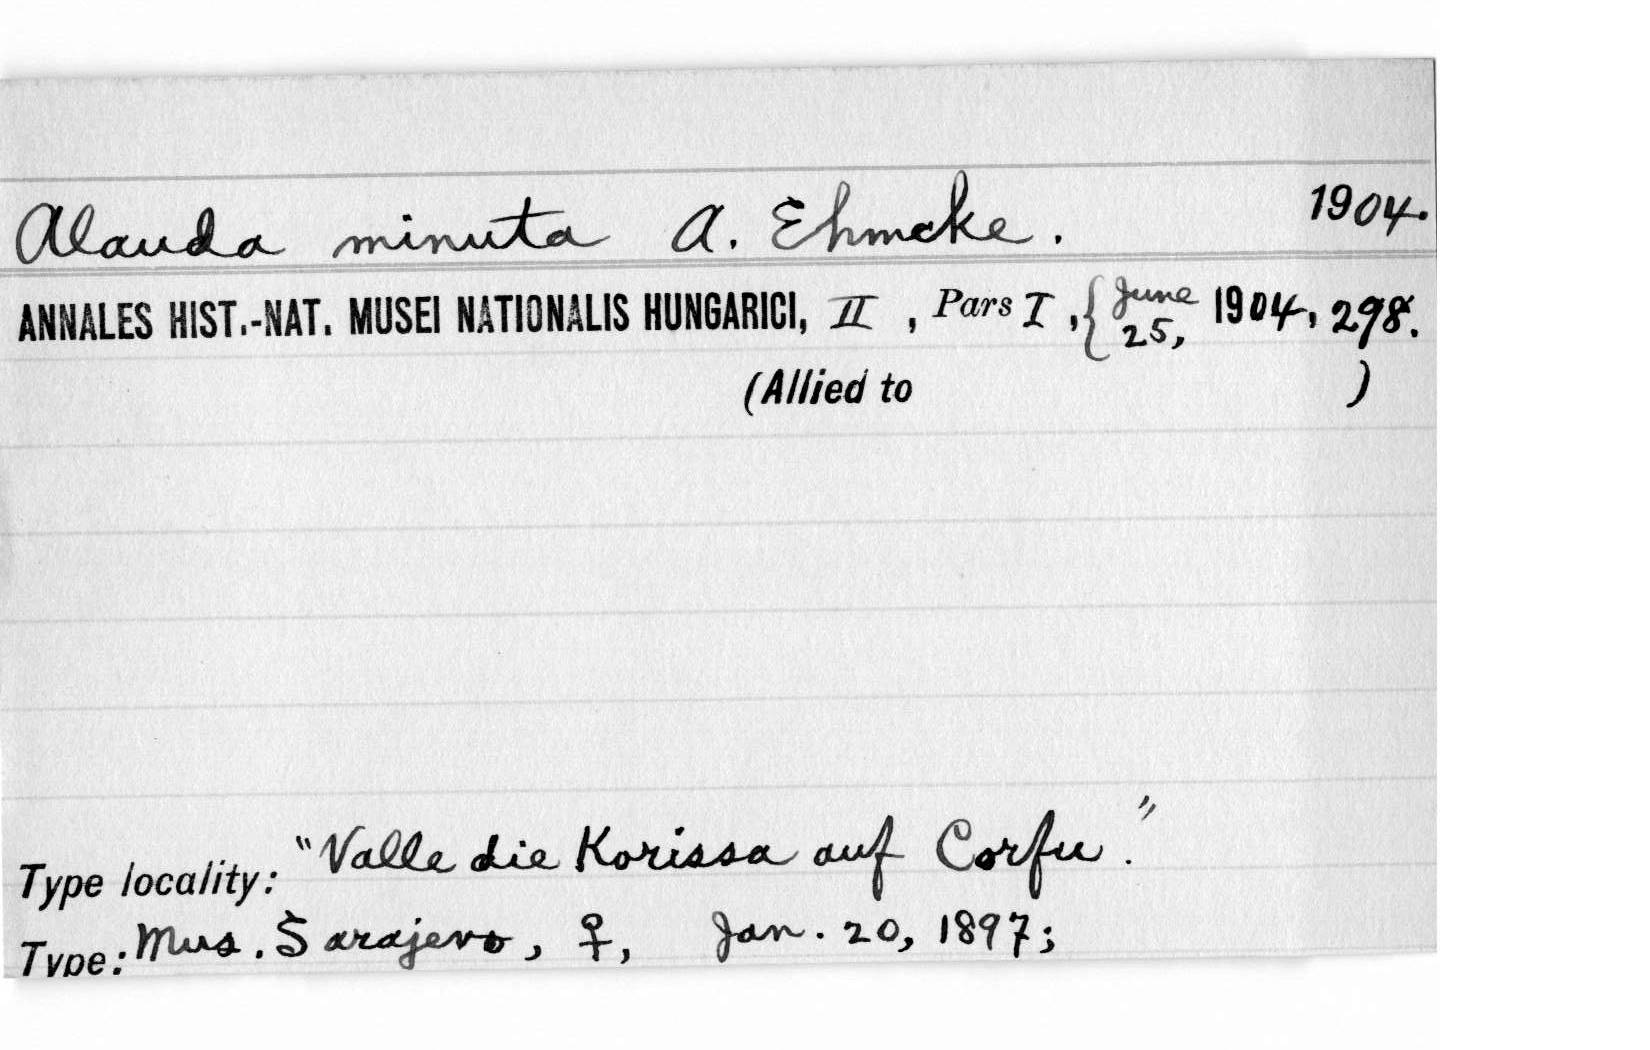 Alauda minuta A. Ehmcke. 1904.
ANNALES HIST.-NAT. MUSEI NATIONALIS HUNGARICI, II, Pars I, {June 25, 1904, 298.
(Allied to )
Type locality: "Valle die Korissa auf Corfu."
Type: Mus. Sarajevo, ♀, Jan. 20, 1897;